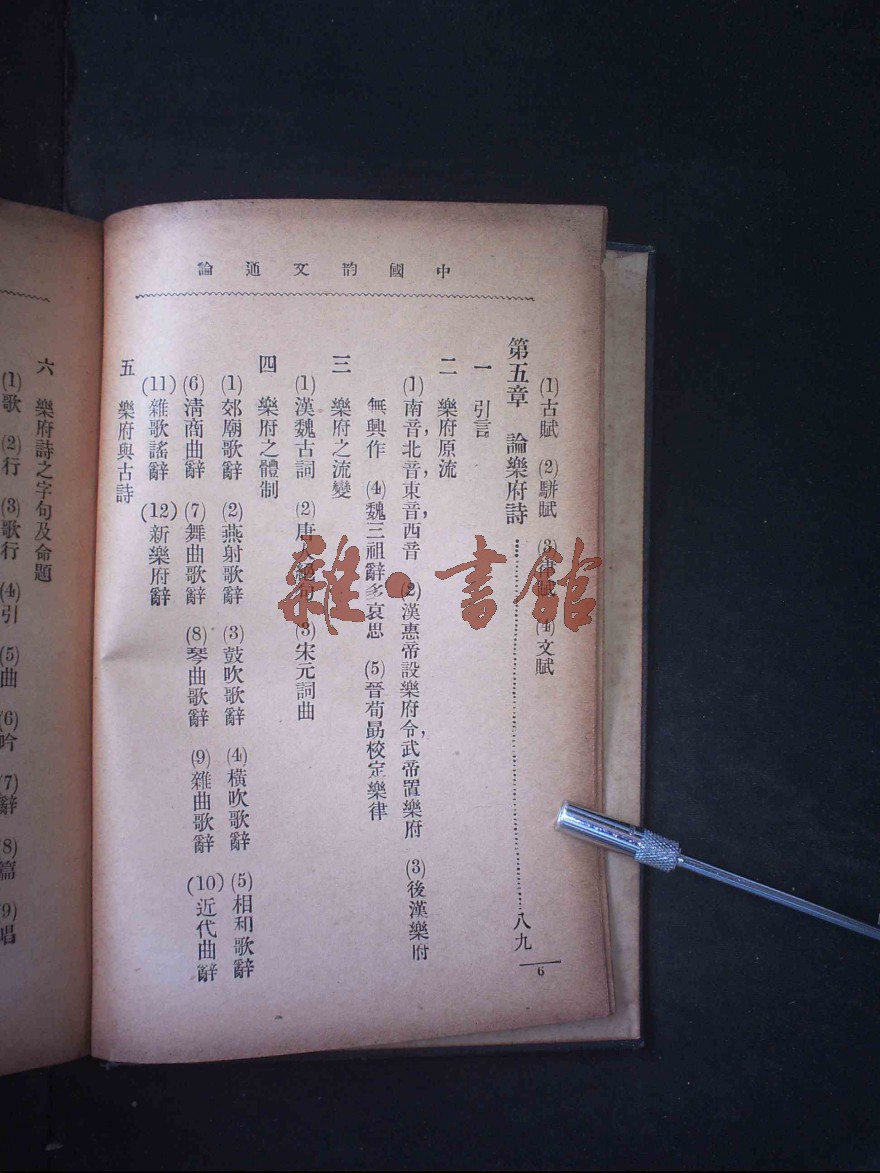 中國韵文通論
(1)古賦 (2)駢賦 (3)律賦 (4)文賦
第五章 論樂府詩…………八九
一 引言
二 樂府原流
(1)南音,北音,東音,西音 (2)漢惠帝設樂府令,武帝置樂府 (3)後漢樂府
無興作 (4)魏三祖辭多哀思 (5)晉荀勗校定樂律
三 樂府之流變
(1)漢魏古詞 (2)唐人絕句 (3)宋元詞曲
四 樂府之體制
(1)郊廟歌辭 (2)燕射歌辭 (3)鼓吹歌辭 (4)橫吹歌辭 (5)相和歌辭
(6)清商曲辭 (7)舞曲歌辭 (8)琴曲歌辭 (9)雜曲歌辭 (10)近代曲辭
(11)雜歌謠辭 (12)新樂府辭
五 樂府與古詩
6
六 樂府詩之字句及命題
(1)歌 (2)行 (3)歌行 (4)引 (5)曲 (6)吟 (7)辭 (8)篇 (9)唱
雜·書館